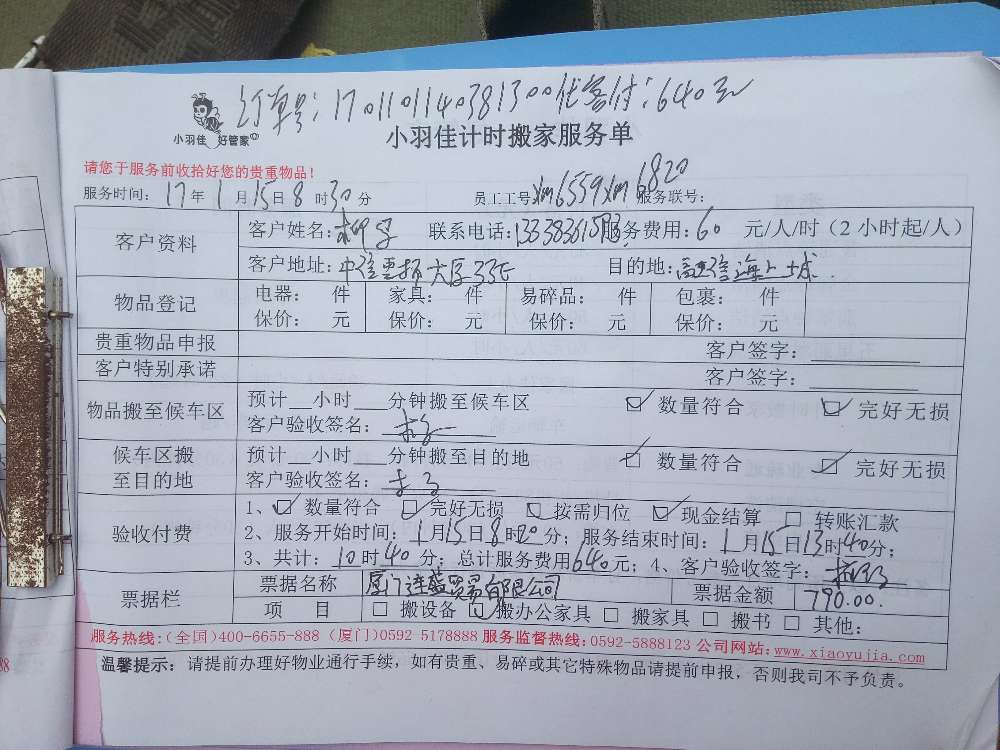 订单号:1701101140381300代客付:640元
小羽佳 好管家
小羽佳计时搬家服务单
请您于服务前收拾好您的贵重物品!
服务时间: 17年1月15日8时30分 员工工号xm6559xm6820服务联号:
客户资料
客户姓名: 联系电话: 服务费用:60 元/人/时(2小时起/人)
客户地址: 大厦33E 目的地: 海上城
物品登记
电器: 件 家具: 件 易碎品: 件 包裹: 件
保价: 元 保价: 元 保价: 元 保价: 元
贵重物品申报 客户签字:
客户特别承诺 客户签字:
物品搬至候车区
预计__小时___分钟搬至候车区 ☑ 数量符合 ☑ 完好无损
客户验收签名:
候车区搬至目的地
预计__小时___分钟搬至目的地 ☑ 数量符合 ☑ 完好无损
客户验收签名:
验收付费
1、☑ 数量符合 ☑ 完好无损 ☑ 按需归位 ☑ 现金结算 □ 转账汇款
2、服务开始时间:1月15日8时20分;服务结束时间:1月15日13时40分;
3、共计:10时40分;总计服务费用640元;4、客户验收签字:
票据栏
票据名称 厦门连蓝贸易有限公司 票据金额 790.00.
项 目 □ 搬设备 ☑ 搬办公家具 □ 搬家具 □ 搬书 □ 其他:
服务热线:(全国)400-6655-888 (厦门)0592 5178888 服务监督热线:0592-5888123 公司网站:www.xiaoyujia.com
温馨提示:请提前办理好物业通行手续,如有贵重、易碎或其它特殊物品请提前申报,否则我司不予负责。